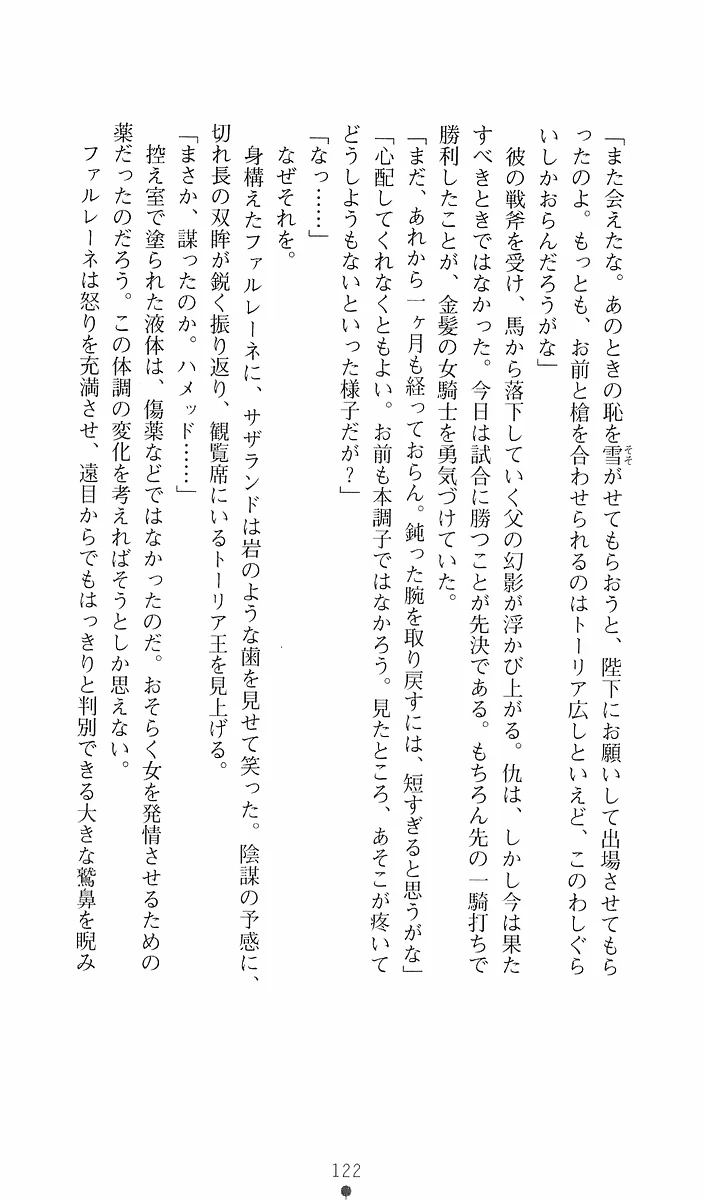 「また会えたな。あのときの恥を雪がせてもらおうと、陛下にお願いして出場させてもら
そそ
ったのよ。もっとも、お前と槍を合わせられるのはトーリア広しといえど、このわしぐら
いしかおらんだろうがな」
彼の戦斧を受け、馬から落下していく父の幻影が浮かび上がる。仇は、しかし今は果た
すべきときではなかった。今日は試合に勝つことが先決である。もちろん先の一騎打ちで
勝利したことが、金髪の女騎士を勇気づけていた。
「まだ、あれから一ヶ月も経っておらん。鈍った腕を取り戻すには、短すぎると思うがな」
「心配してくれなくともよい。お前も本調子ではなかろう。見たところ、あそこが疼いて
どうしようもないといった様子だが？」
「なっ……」
なぜそれを。
身構えたファルレーネに、サザランドは岩のような歯を見せて笑った。陰謀の予感に、
切れ長の双眸が鋭く振り返り、観覧席にいるトーリア王を見上げる。
「まさか、謀ったのか。ハメッド……」
控え室で塗られた液体は、傷薬などではなかったのだ。おそらく女を発情させるための
薬だったのだろう。この体調の変化を考えればそうとしか思えない。
ファルレーネは怒りを充満させ、遠目からでもはっきりと判別できる大きな鷲鼻を睨み
122